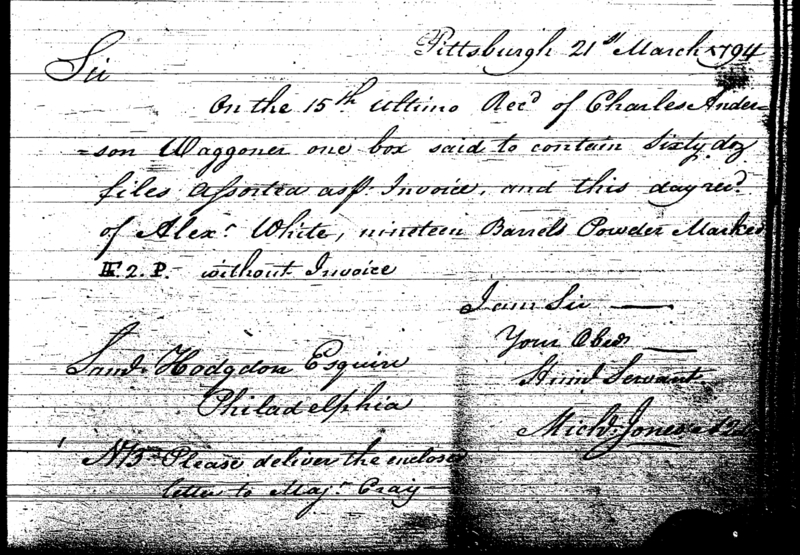 Pittsburgh 21st March 1794
Sir
On the 15th Ultimo Recd of Charles Ander=
=son Waggoner one box said to contain Sixty doz
files Assorted as pr Invoice, and this day recd.
of Alexr. White, nineteen Barrels Powder Marked
F. 2. P. without Invoice
I am Sir
Your Obed
Huml Servant
Michl. Jones
Saml. Hodgdon Esquire
Philadelphia
NB Please deliver the enclosed
letter to Majr. Craig